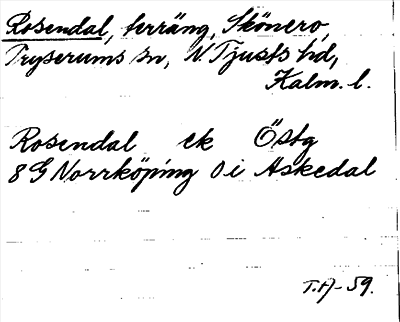 Rosendal, terräng, Skönero,
Tryserums sn, N. Tjusts hd,
Kalm. l.
Rosendal ek Östg
8G Norrköping 0i Askedal
T.A-59.